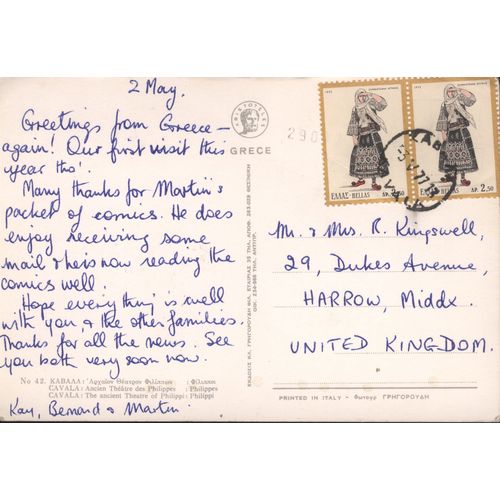 2 May.
Greetings from Greece –
again! Our first visit this
year tho'.
Many thanks for Martin's
packet of comics. He does
enjoy receiving some
mail & he is now reading the
comics well.
Hope everything is well
with you, & the other families.
Thanks for all the news. See
you both very soon now.
Kay, Bernard & Martin
No 42. ΚΑΒΑΛΑ: Ἀρχαῖον Θέατρον Φιλίππων : Φίλιπποι
CAVALA: Ancien Théâtre des Philippes : Philippes
CAVALA: The ancient Theatre of Philippi : Philippes
ARISTOTELES
GREECE
290
ΕΛΛΑΣ-HELLAS ΔΡ. 2,50
ΕΛΛΑΣ-HELLAS ΔΡ. 2,50
Mr. & Mrs. R. Kingswell,
29, Dukes Avenue,
HARROW, Middx.
UNITED KINGDOM.
PRINTED IN ITALY - Φωτογρ ΓΡΗΓΟΡΟΥΔΗ